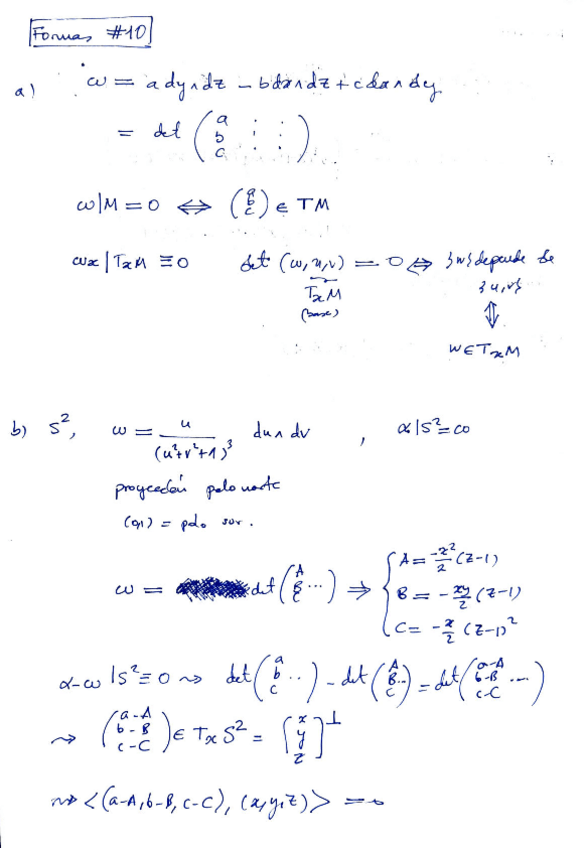 Formas #10
a) ω = a dy∧dz − b dx∧dz + c dx∧dy
= det ( a b c ⋮ ⋮ )
ω|M = 0 ⟺ ( a b c ) ∈ TM
ωx | TxM ≡ 0 det (w, u, v) = 0 ⟺ {w} depende de {u,v}
TxM (base) ⇕
w ∈ TxM
b) S², ω = u / (u²+v²+1)³ du∧dv , α|S² = ω
proyección polo norte
(0,1) = polo sur.
ω = det ( A B C ... ) ⇒ { A = −x²/2 (z−1)
B = −xy/2 (z−1)
C = −x/2 (z−1)²
α−ω |S² ≡ 0 ⇝ det ( a b c .. ) − det ( A B C .. ) = det ( a−A b−B c−C .... )
⇝ ( a−A b−B c−C ) ∈ TxS² = [ x y z ]⊥
⇝ < (a−A, b−B, c−C), (x,y,z) > = 0